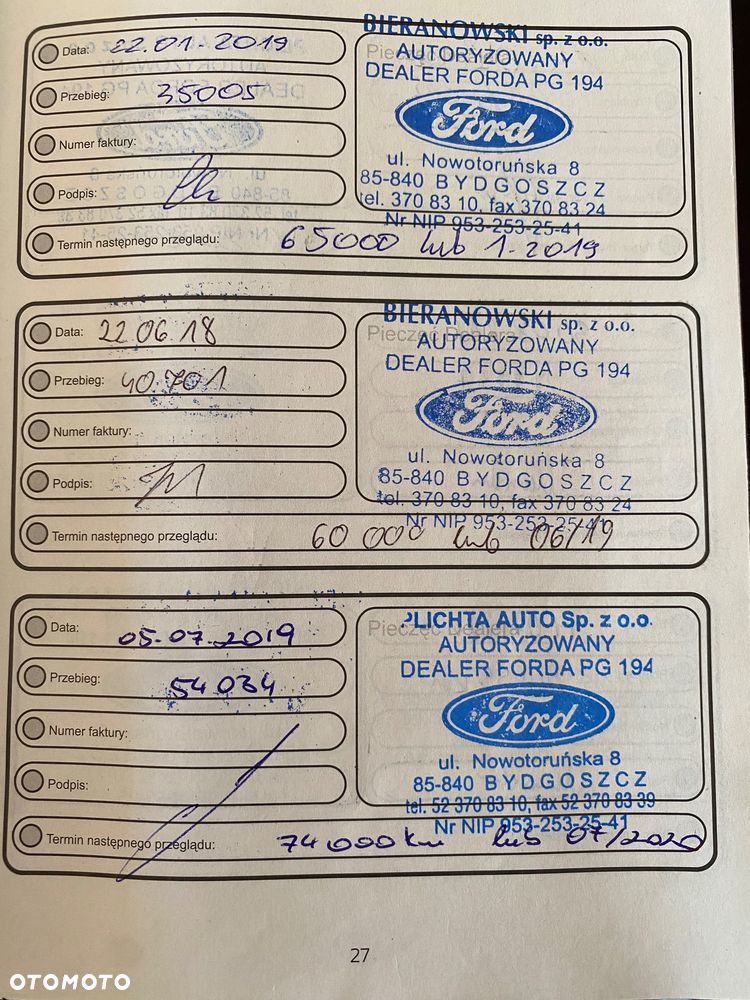 Data: 22.01-2019
Przebieg: 35005
Numer faktury:
Podpis:
Termin następnego przeglądu: 65000 lub 1-2019
Pieczęć Dealera
BIERANOWSKI sp. z o.o.
AUTORYZOWANY
DEALER FORDA PG 194
Ford
ul. Nowotoruńska 8
85-840 BYDGOSZCZ
tel. 370 83 10, fax 370 83 24
Nr NIP 953-253-25-41
Data: 22 06.18
Przebieg: 40.701
Numer faktury:
Podpis:
Termin następnego przeglądu: 60 000 lub 06/19
Pieczęć Dealera
BIERANOWSKI sp. z o.o.
AUTORYZOWANY
DEALER FORDA PG 194
Ford
ul. Nowotoruńska 8
85-840 BYDGOSZCZ
tel. 370 83 10, fax 370 83 24
Nr NIP 953-253-25-41
Data: 05.07.2019
Przebieg: 54034
Numer faktury:
Podpis:
Termin następnego przeglądu: 74 000 km lub 07/2020
Pieczęć Dealera
PLICHTA AUTO Sp. z o.o.
AUTORYZOWANY
DEALER FORDA PG 194
Ford
ul. Nowotoruńska 8
85-840 BYDGOSZCZ
tel. 52 370 83 10, fax 52 370 83 39
Nr NIP 953-253-25-41
27
OTOMOTO